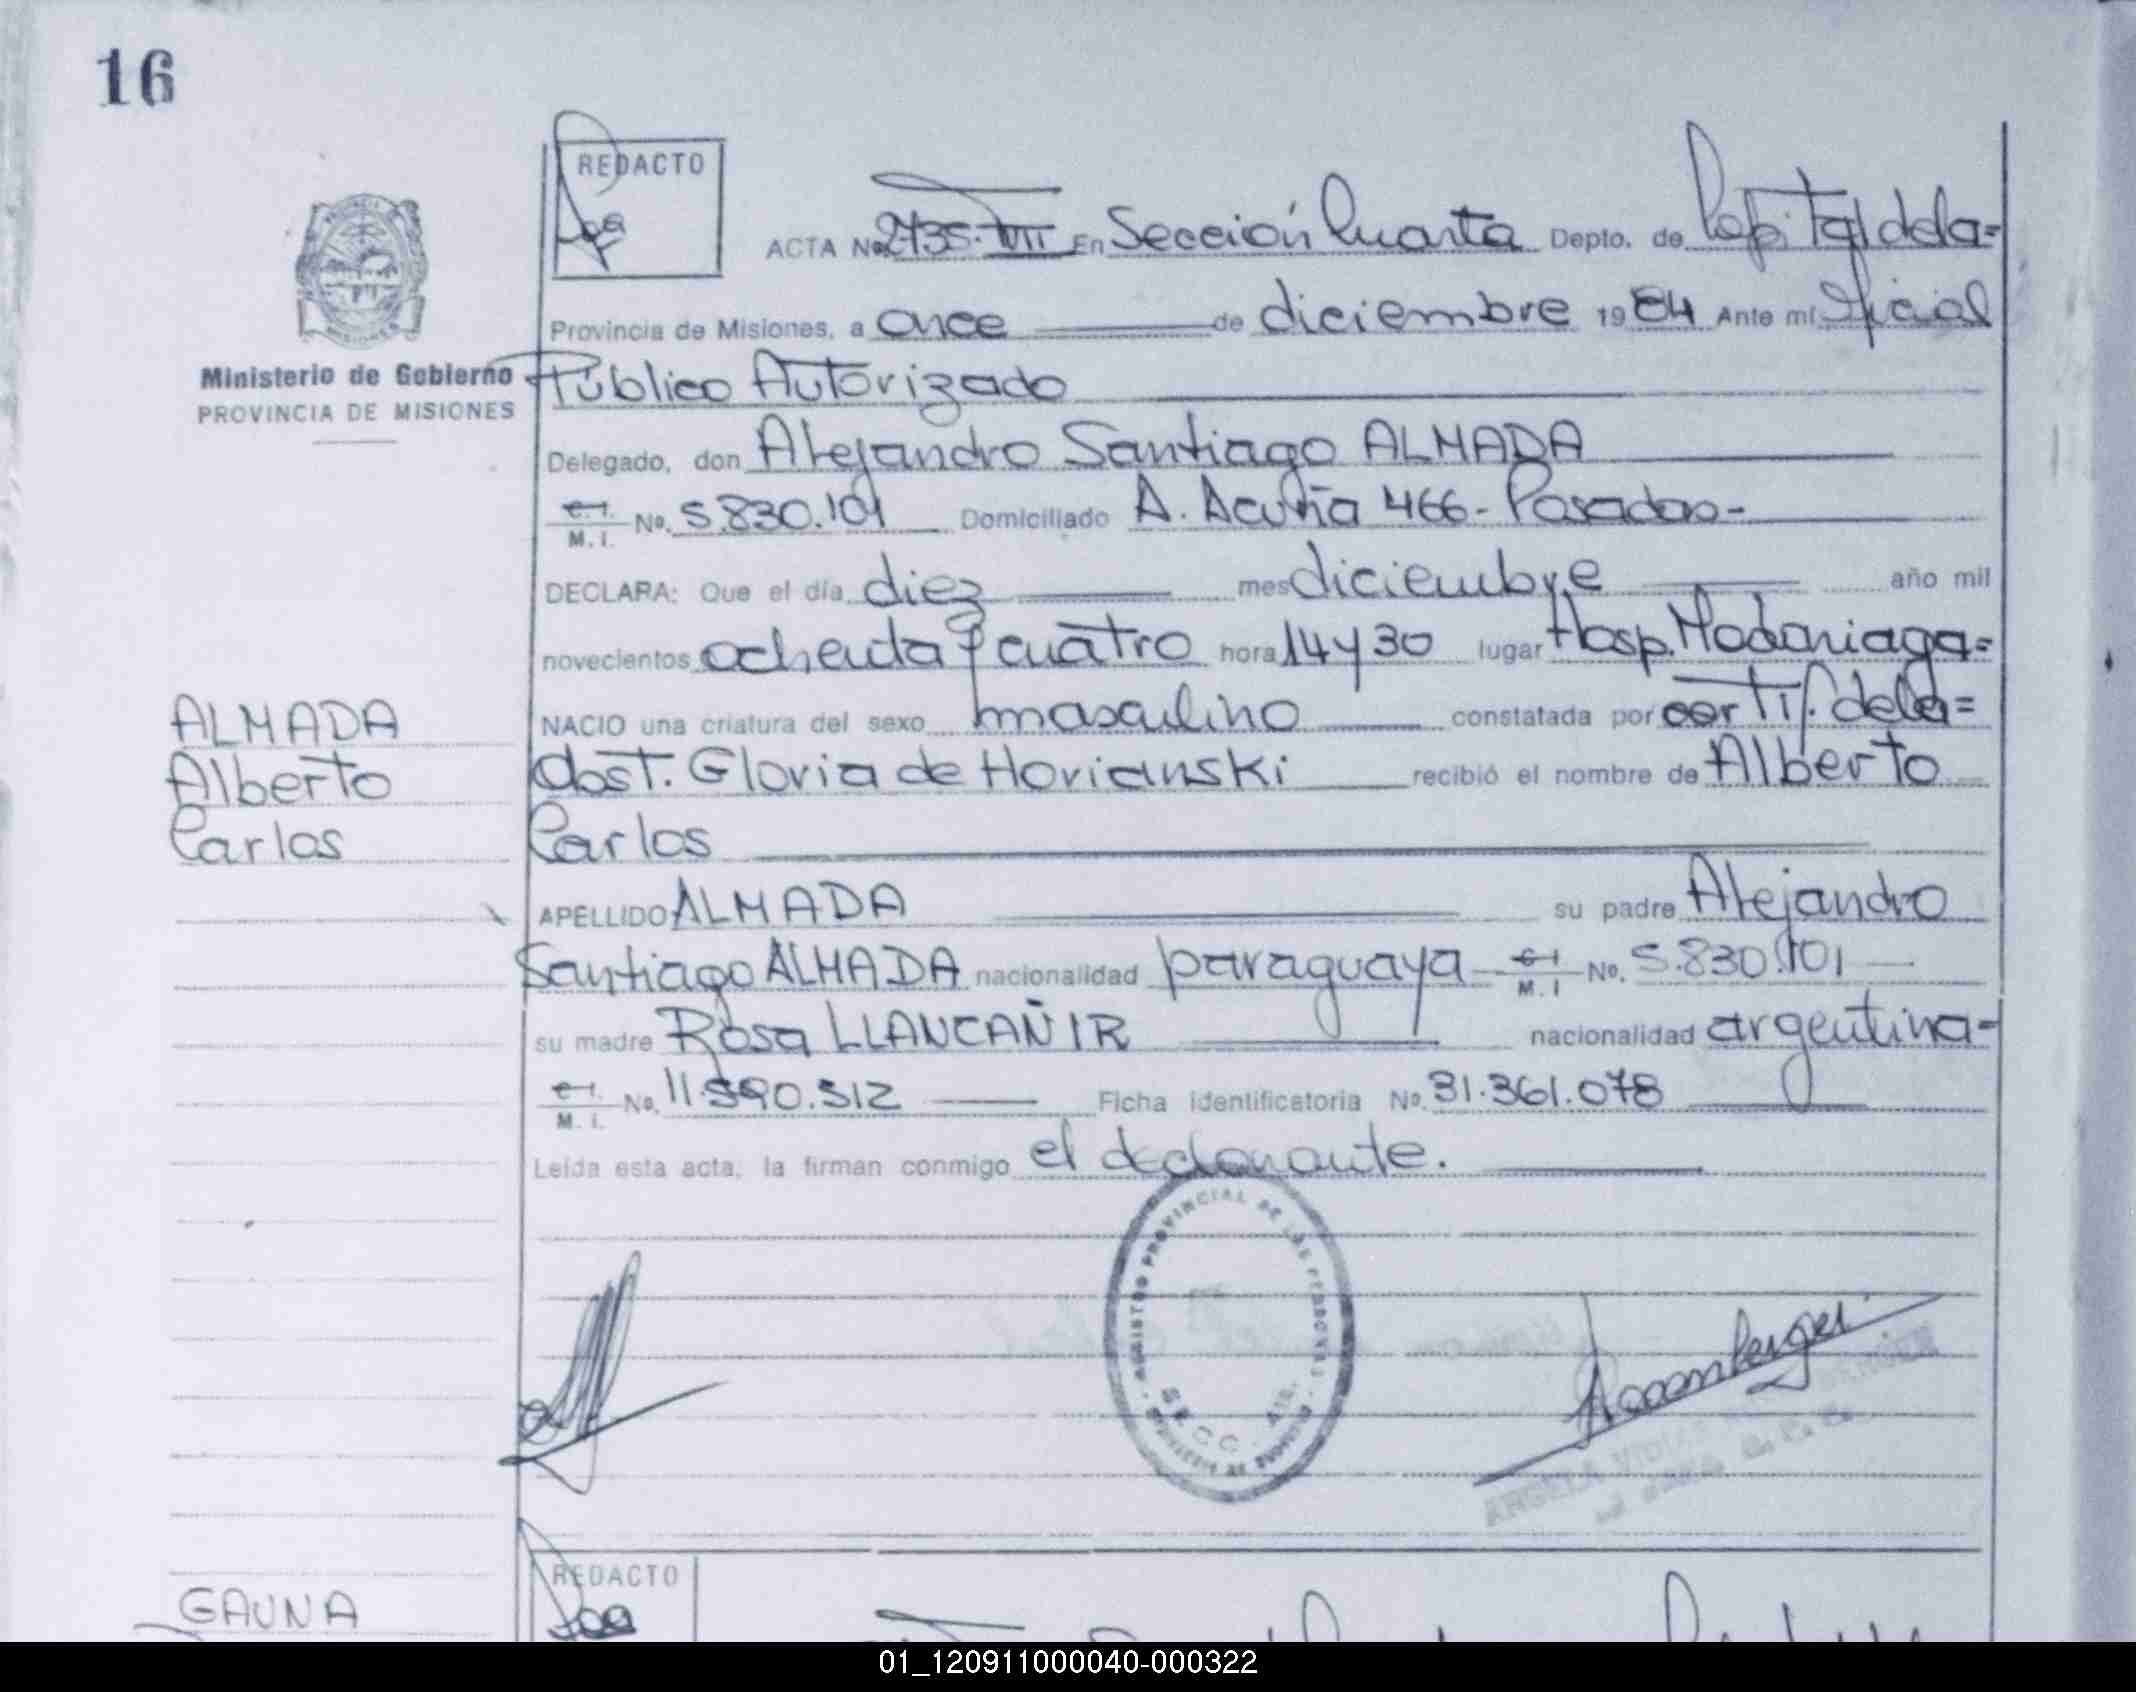 16
REDACTO
ACTA No 2735-VIII En Sección Cuarta Depto. de Capital de la=
Provincia de Misiones, a once de diciembre 1984 Ante mí Oficial
Ministerio de Gobierno
PROVINCIA DE MISIONES
Público Autorizado
Delegado, don Alejandro Santiago ALMADA
C.I. M.I. No. 5.830.101 Domiciliado A. Acuña 466- Posadas-
DECLARA: Que el día diez mes diciembre año mil
novecientos ochenta y cuatro hora 14 y 30 lugar Hosp. Madariaga=
NACIO una criatura del sexo masculino constatada por certif. de la=
Obst. Gloria de Horianski recibió el nombre de Alberto
Carlos
ALMADA
Alberto
Carlos
APELLIDO ALMADA su padre Alejandro
Santiago ALMADA nacionalidad paraguaya C.I. M.I No. 5.830.101
su madre Rosa LLANCAÑIR nacionalidad argentina-
C.I. M.I. No. 11.590.512 Ficha identificatoria No. 31.361.078
Leída esta acta, la firman conmigo el declarante.
REGISTRO PROVINCIAL DE LAS PERSONAS
GAUNA
REDACTO
01_120911000040-000322